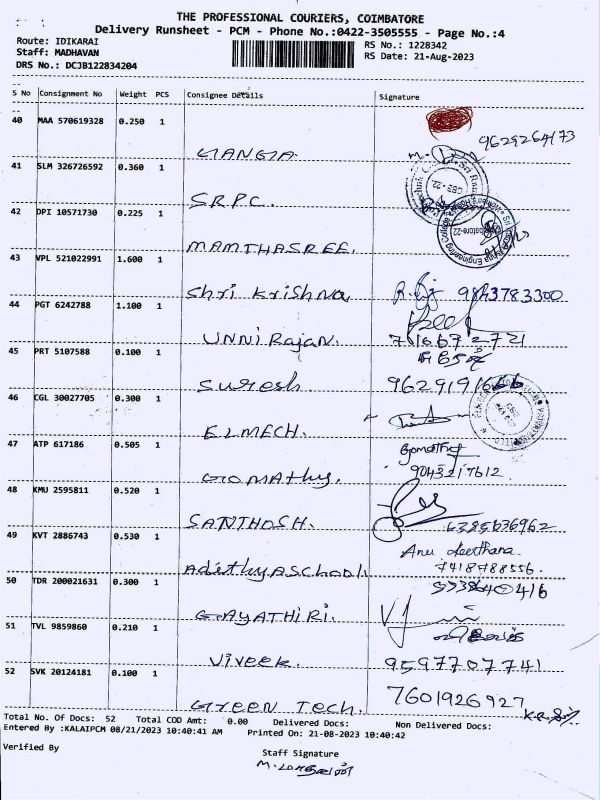 THE PROFESSIONAL COURIERS, COIMBATORE
Delivery Runsheet - PCM - Phone No.:0422-3505555 - Page No.:4
Route: IDIKARAI
RS No.: 1228342
Staff: MADHAVAN
RS Date: 21-Aug-2023
DRS No.: DCJB122834204
S No Consignment No Weight PCS Consignee Details Signature
40 MAA 570619328 0.250 1
9629264173
GIANGIA
41 SLM 326726592 0.360 1
S.R.P.C.
42 DPI 10571730 0.225 1
MAMTHASREE.
43 VPL 521022991 1.600 1
Shri Krishna, 9843783300
44 PGT 6242788 1.100 1
UNNI Rajan.
45 PRT 5107588 0.100 1
Suresh
46 CGL 30027705 0.300 1
ELMECH.
47 ATP 617186 0.505 1
Gomathy
GOMATHY. 9043217612
48 KMU 2595811 0.520 1
SANTHOSH. 6385636962
49 KVT 2886743 0.530 1
Anu Keerthana.
7418788556.
50 TDR 200021631 0.300 1
GAYATHIRI.
51 TVL 9859860 0.210 1
Viveek. 9597707741
52 SVK 20124181 0.100 1
7601926927
Green Tech.
Total No. Of Docs: 52 Total COD Amt: 0.00 Delivered Docs: Non Delivered Docs:
Entered By :KALAIPCM 08/21/2023 10:40:41 AM Printed On: 21-08-2023 10:40:42
Verified By
Staff Signature